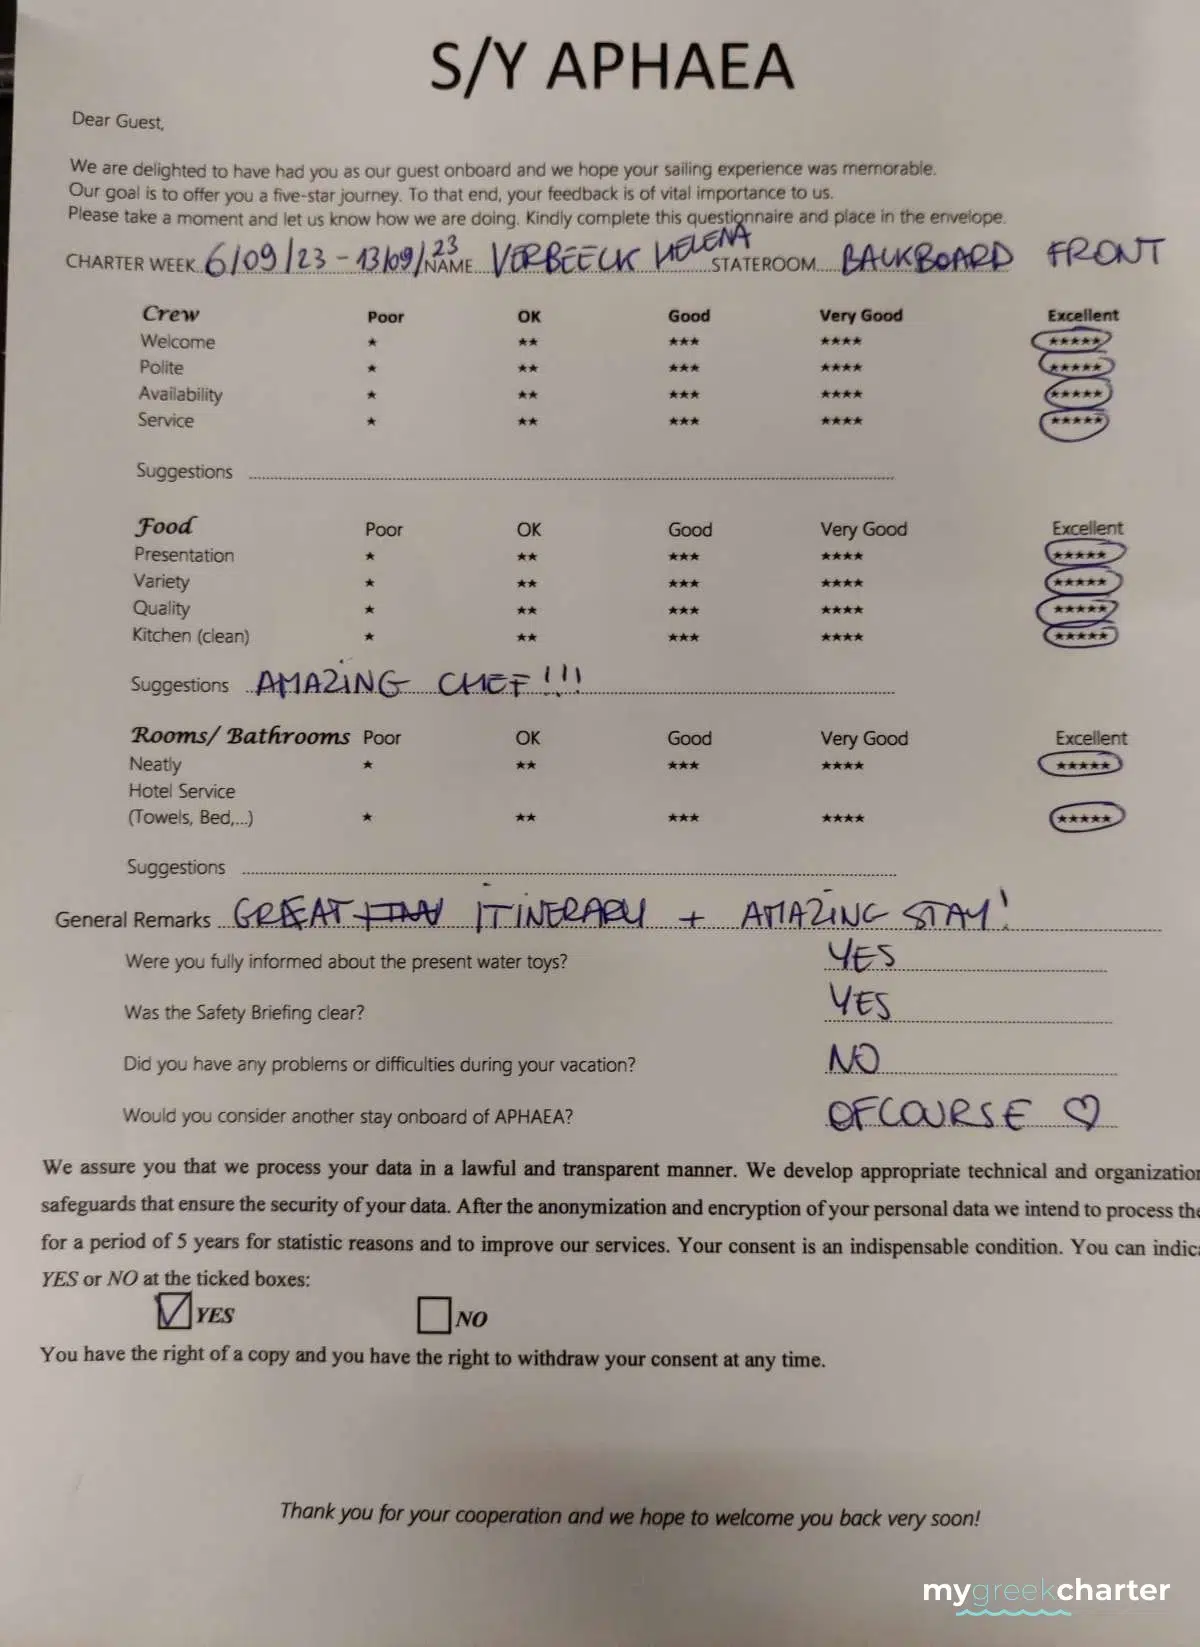 S/Y APHAEA
Dear Guest,
We are delighted to have had you as our guest onboard and we hope your sailing experience was memorable.
Our goal is to offer you a five-star journey. To that end, your feedback is of vital importance to us.
Please take a moment and let us know how we are doing. Kindly complete this questionnaire and place in the envelope.
CHARTER WEEK 6/09/23 - 13/09/23 NAME VERBEECK HELENA STATEROOM BACKBOARD FRONT
Crew Poor OK Good Very Good Excellent
Welcome ★ ★★ ★★★ ★★★★ ★★★★★
Polite ★ ★★ ★★★ ★★★★ ★★★★★
Availability ★ ★★ ★★★ ★★★★ ★★★★★
Service ★ ★★ ★★★ ★★★★ ★★★★★
Suggestions
Food Poor OK Good Very Good Excellent
Presentation ★ ★★ ★★★ ★★★★ ★★★★★
Variety ★ ★★ ★★★ ★★★★ ★★★★★
Quality ★ ★★ ★★★ ★★★★ ★★★★★
Kitchen (clean) ★ ★★ ★★★ ★★★★ ★★★★★
Suggestions AMAZING CHEF!!!
Rooms/ Bathrooms Poor OK Good Very Good Excellent
Neatly ★ ★★ ★★★ ★★★★ ★★★★★
Hotel Service
(Towels, Bed,...) ★ ★★ ★★★ ★★★★ ★★★★★
Suggestions
General Remarks GREAT ITINERARY + AMAZING STAY!
Were you fully informed about the present water toys? YES
Was the Safety Briefing clear? YES
Did you have any problems or difficulties during your vacation? NO
Would you consider another stay onboard of APHAEA? OFCOURSE ♡
We assure you that we process your data in a lawful and transparent manner. We develop appropriate technical and organization
safeguards that ensure the security of your data. After the anonymization and encryption of your personal data we intend to process the
for a period of 5 years for statistic reasons and to improve our services. Your consent is an indispensable condition. You can indica
YES or NO at the ticked boxes:
☑ YES ☐ NO
You have the right of a copy and you have the right to withdraw your consent at any time.
Thank you for your cooperation and we hope to welcome you back very soon!
mygreekcharter